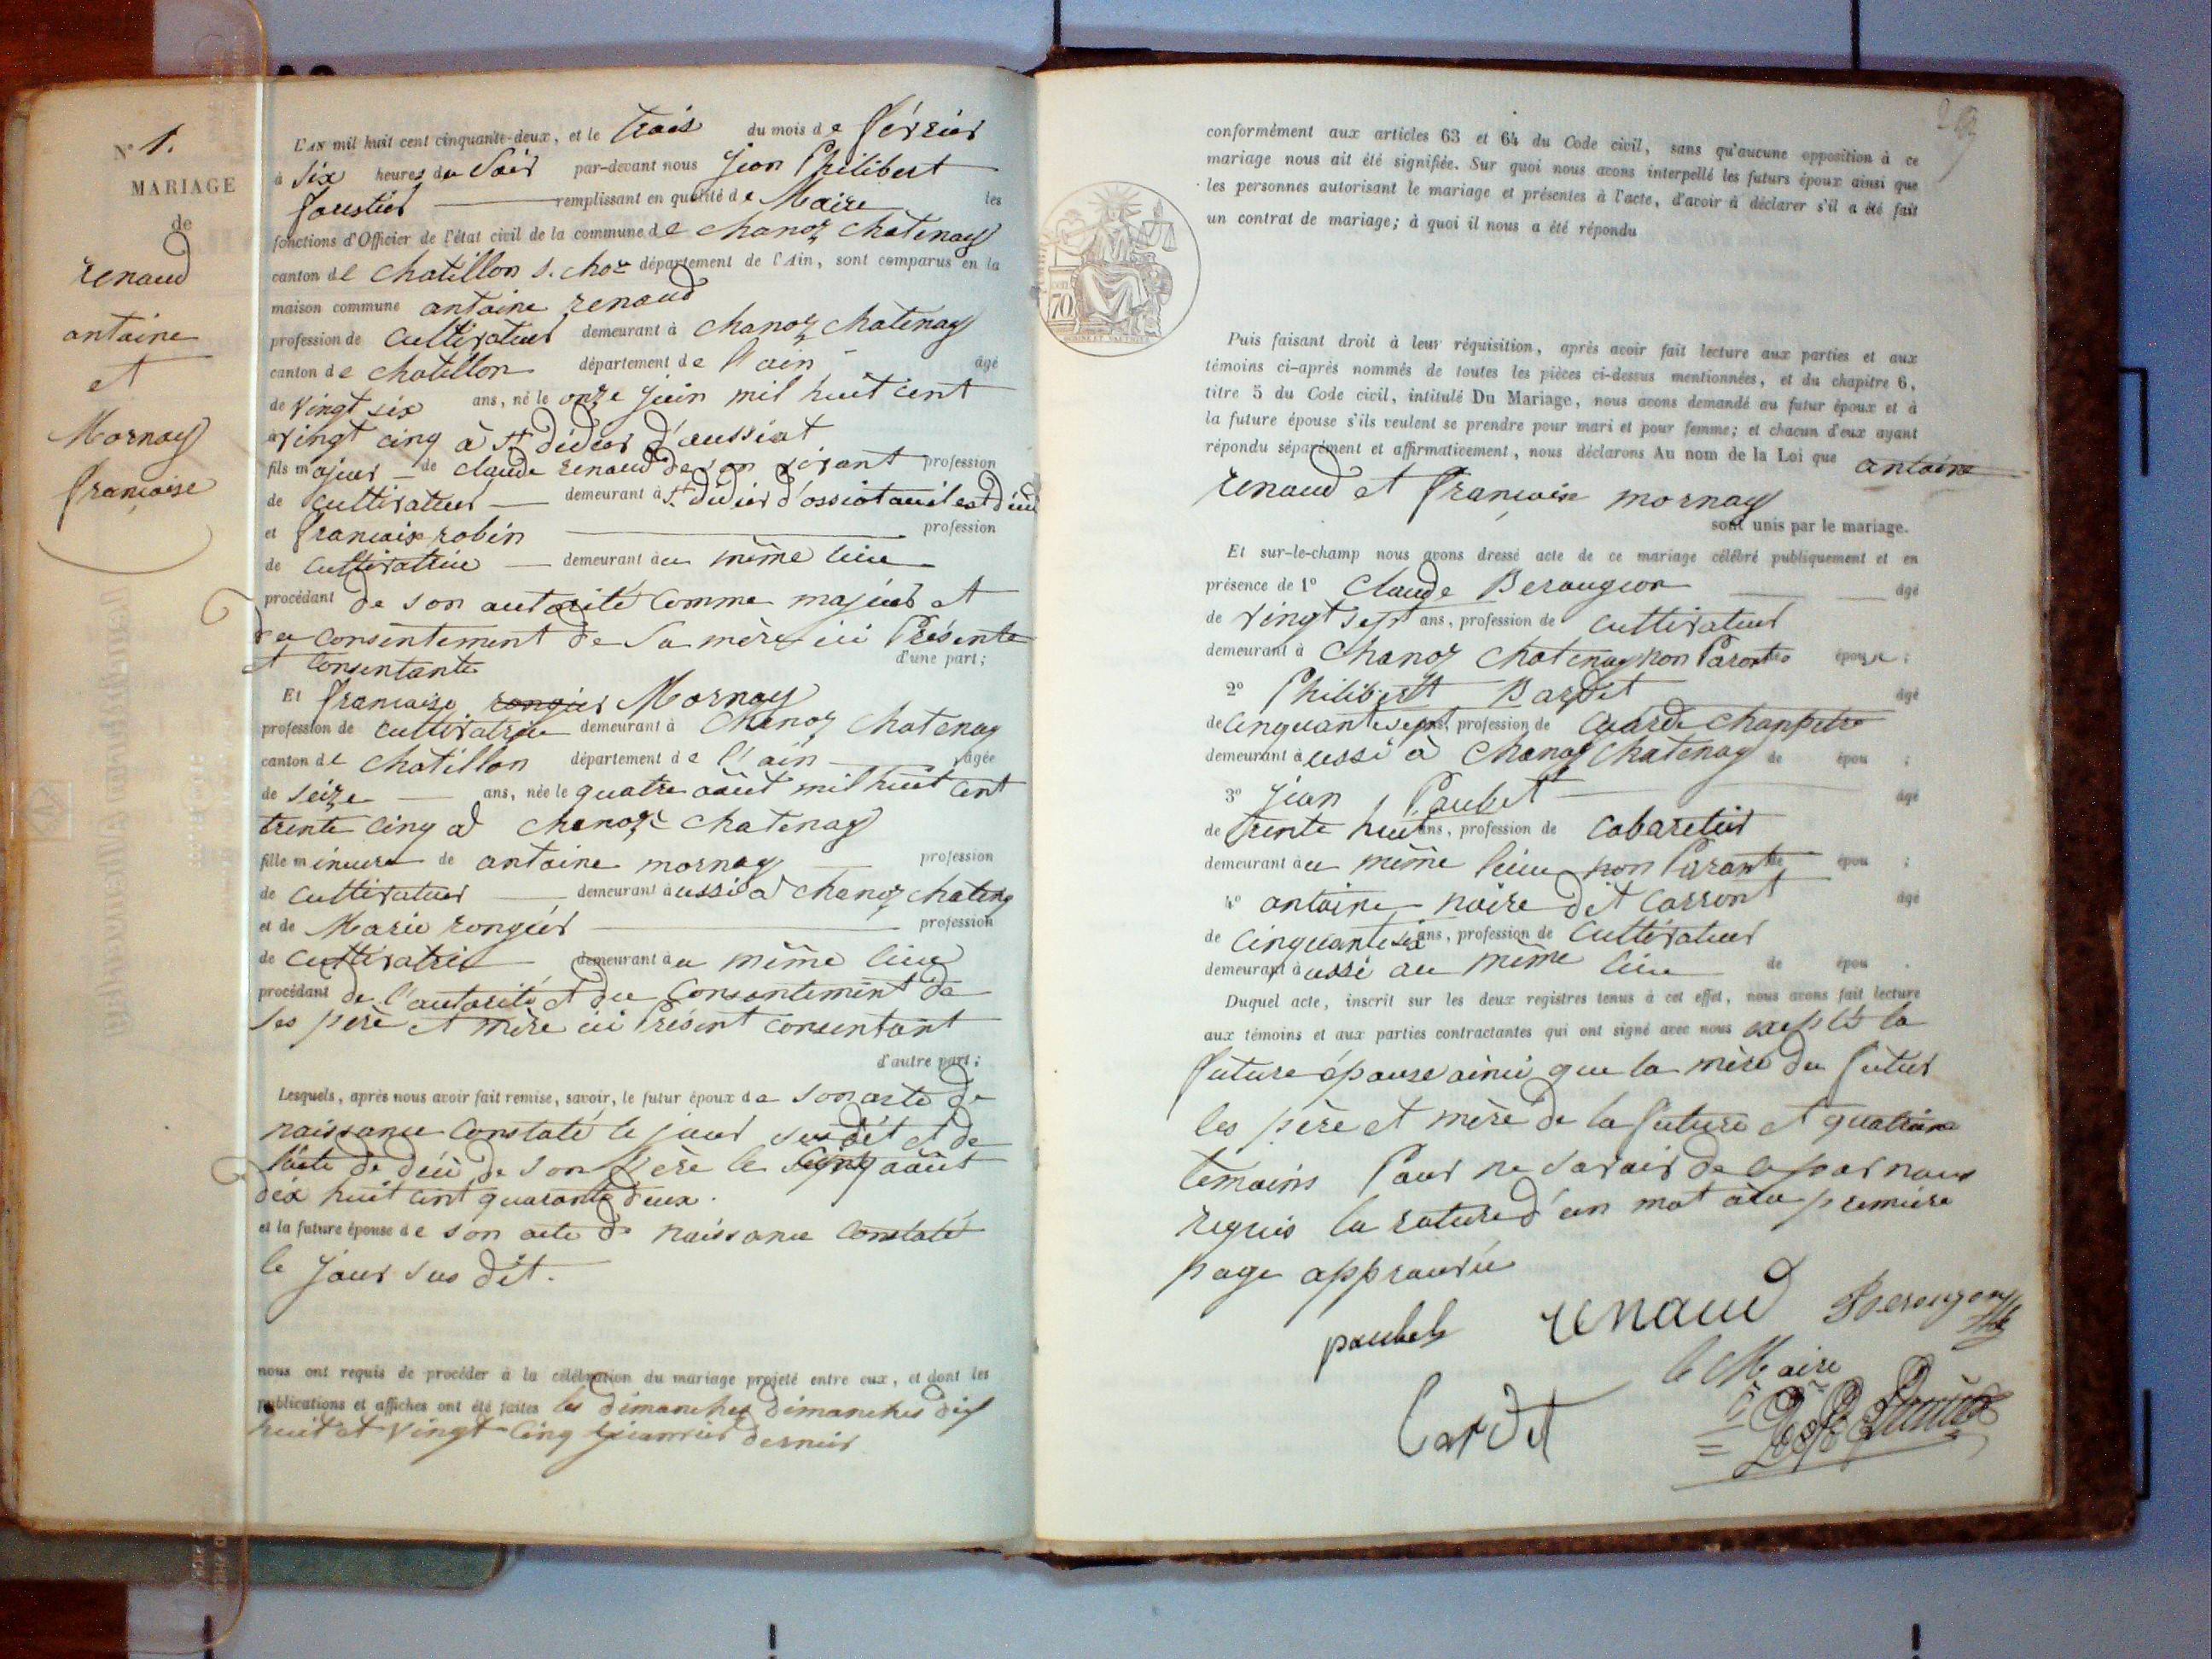 N° 1.
MARIAGE
de
renaud
antoine
et
Mornay
francoise
L'AN mil huit cent cinquante-deux, et le trois du mois de février
à six heures du soir par-devant nous jean Philibert
foustier remplissant en qualité de Maire les
fonctions d'Officier de l'état civil de la commune de chanoz chatenay
canton de chatillon s. cho.ne département de l'Ain, sont comparus en la
maison commune antoine renaud
profession de cultivateur demeurant à chanoz chatenay
canton de chatillon département de l'ain âgé
de vingt six ans, né le onze juin mil huit cent
vingt cinq à St didier d'aussiat
fils majeur de claude renaud de son vivant profession
de cultivateur demeurant à St didier d'ossiat ou il est
et francoise robin profession
de cultivatrice demeurant au même lieu
procédant de son autorité comme majeur et
du consentement de sa mère ici Présente
et consentante d'une part;
Et francoise rongier Mornay
profession de cultivatrice demeurant à chanoz chatenay
canton de chatillon département de l'ain âgée
de seize ans, née le quatre août mil huit cent
trente cinq à chanoz chatenay
fille mineure de antoine mornay profession
de cultivateur demeurant aussi à chanoz chateng
et de Marie rongier profession
de cultivatrice demeurant au même lieu
procédant de l'autorité et du consentement de
ses père et mère ici Présent consentant
d'autre part;
Lesquels, après nous avoir fait remise, savoir, le futur époux de son acte de
naissance constaté le jour sus dit et de
l'acte de déci de son père le cinq août
dix huit cent quarante deux.
et la future épouse de son acte de naissance constaté
le jour sus dit.
nous ont requis de procéder à la célébration du mariage projeté entre eux, et dont les
publications et affiches ont été faites les dimanches dimanches dix
huit et vingt cinq janvier dernier
conformément aux articles 63 et 64 du Code civil, sans qu'aucune opposition à ce
mariage nous ait été signifiée. Sur quoi nous avons interpellé les futurs époux ainsi que
les personnes autorisant le mariage et présentes à l'acte, d'avoir à déclarer s'il a été fait
un contrat de mariage; à quoi il nous a été répondu
70
Puis faisant droit à leur réquisition, après avoir fait lecture aux parties et aux
témoins ci-après nommés de toutes les pièces ci-dessus mentionnées, et du chapitre 6,
titre 5 du Code civil, intitulé Du Mariage, nous avons demandé au futur époux et à
la future épouse s'ils veulent se prendre pour mari et pour femme; et chacun d'eux ayant
répondu séparément et affirmativement, nous déclarons Au nom de la Loi que antoine
renaud et francoise mornay
sont unis par le mariage.
Et sur-le-champ nous avons dressé acte de ce mariage célébré publiquement et en
présence de 1° claude Berougeon âgé
de vingt sept ans, profession de cultivateur
demeurant à chanoz chatenay non Parent
2° Philibert Bardet âgé
de cinquante sept, profession de garde champetre
demeurant aussi à chanoz chatenay de épou ;
3° jean Paubet âgé
de trente huit ans, profession de cabaretier
demeurant au même lieu non Parant épou ;
4° antoine noire dit carront âgé
de cinquante six ans, profession de cultivateur
demeurant aussi au même lieu de épou .
Duquel acte, inscrit sur les deux registres tenus à cet effet, nous avons fait lecture
aux témoins et aux parties contractantes qui ont signé avec nous excepté la
future épouse ainsi que la mère du futur
les père et mère de la future et quatrieme
témoins Pour ne savoir de ce par nous
requis la rature d'un mot a la premiere
page approuvée
paubet renaud Berougeon
le Maire
bardet